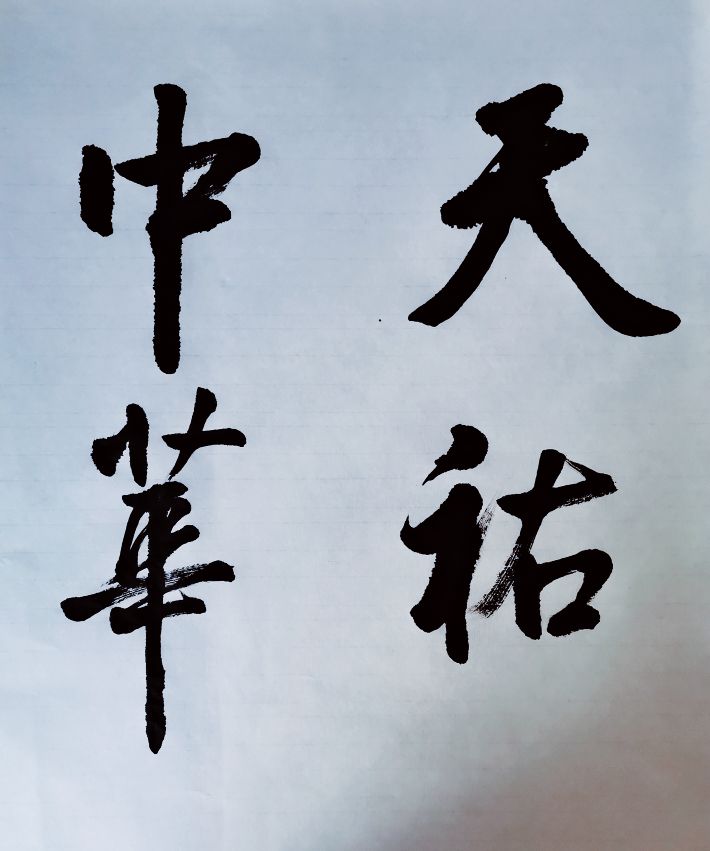 天祐
中華